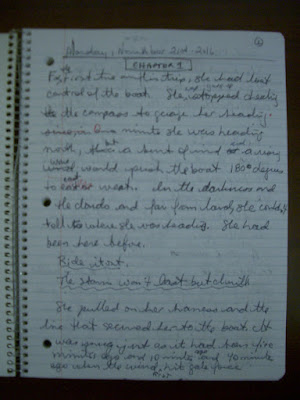 Monday, November 21st - 2016
CHAPTER 1
For the first time on this trip, she had lost
control of the boat. She had stopped checking
the compass to gauge her heading.
One minute she was heading
north, then a burst of wind or a
would push the boat 180 degrees
to east or west. In the darkness and
the clouds and far from land, she couldn't
tell where she was heading. She had
been here before.
Ride it out.
The storm won't last
She pulled on her harness and the
line that secured her to the boat. It
was just as it had been
minutes ago and 10 minutes and 40 minutes
ago when the wind hit gale force